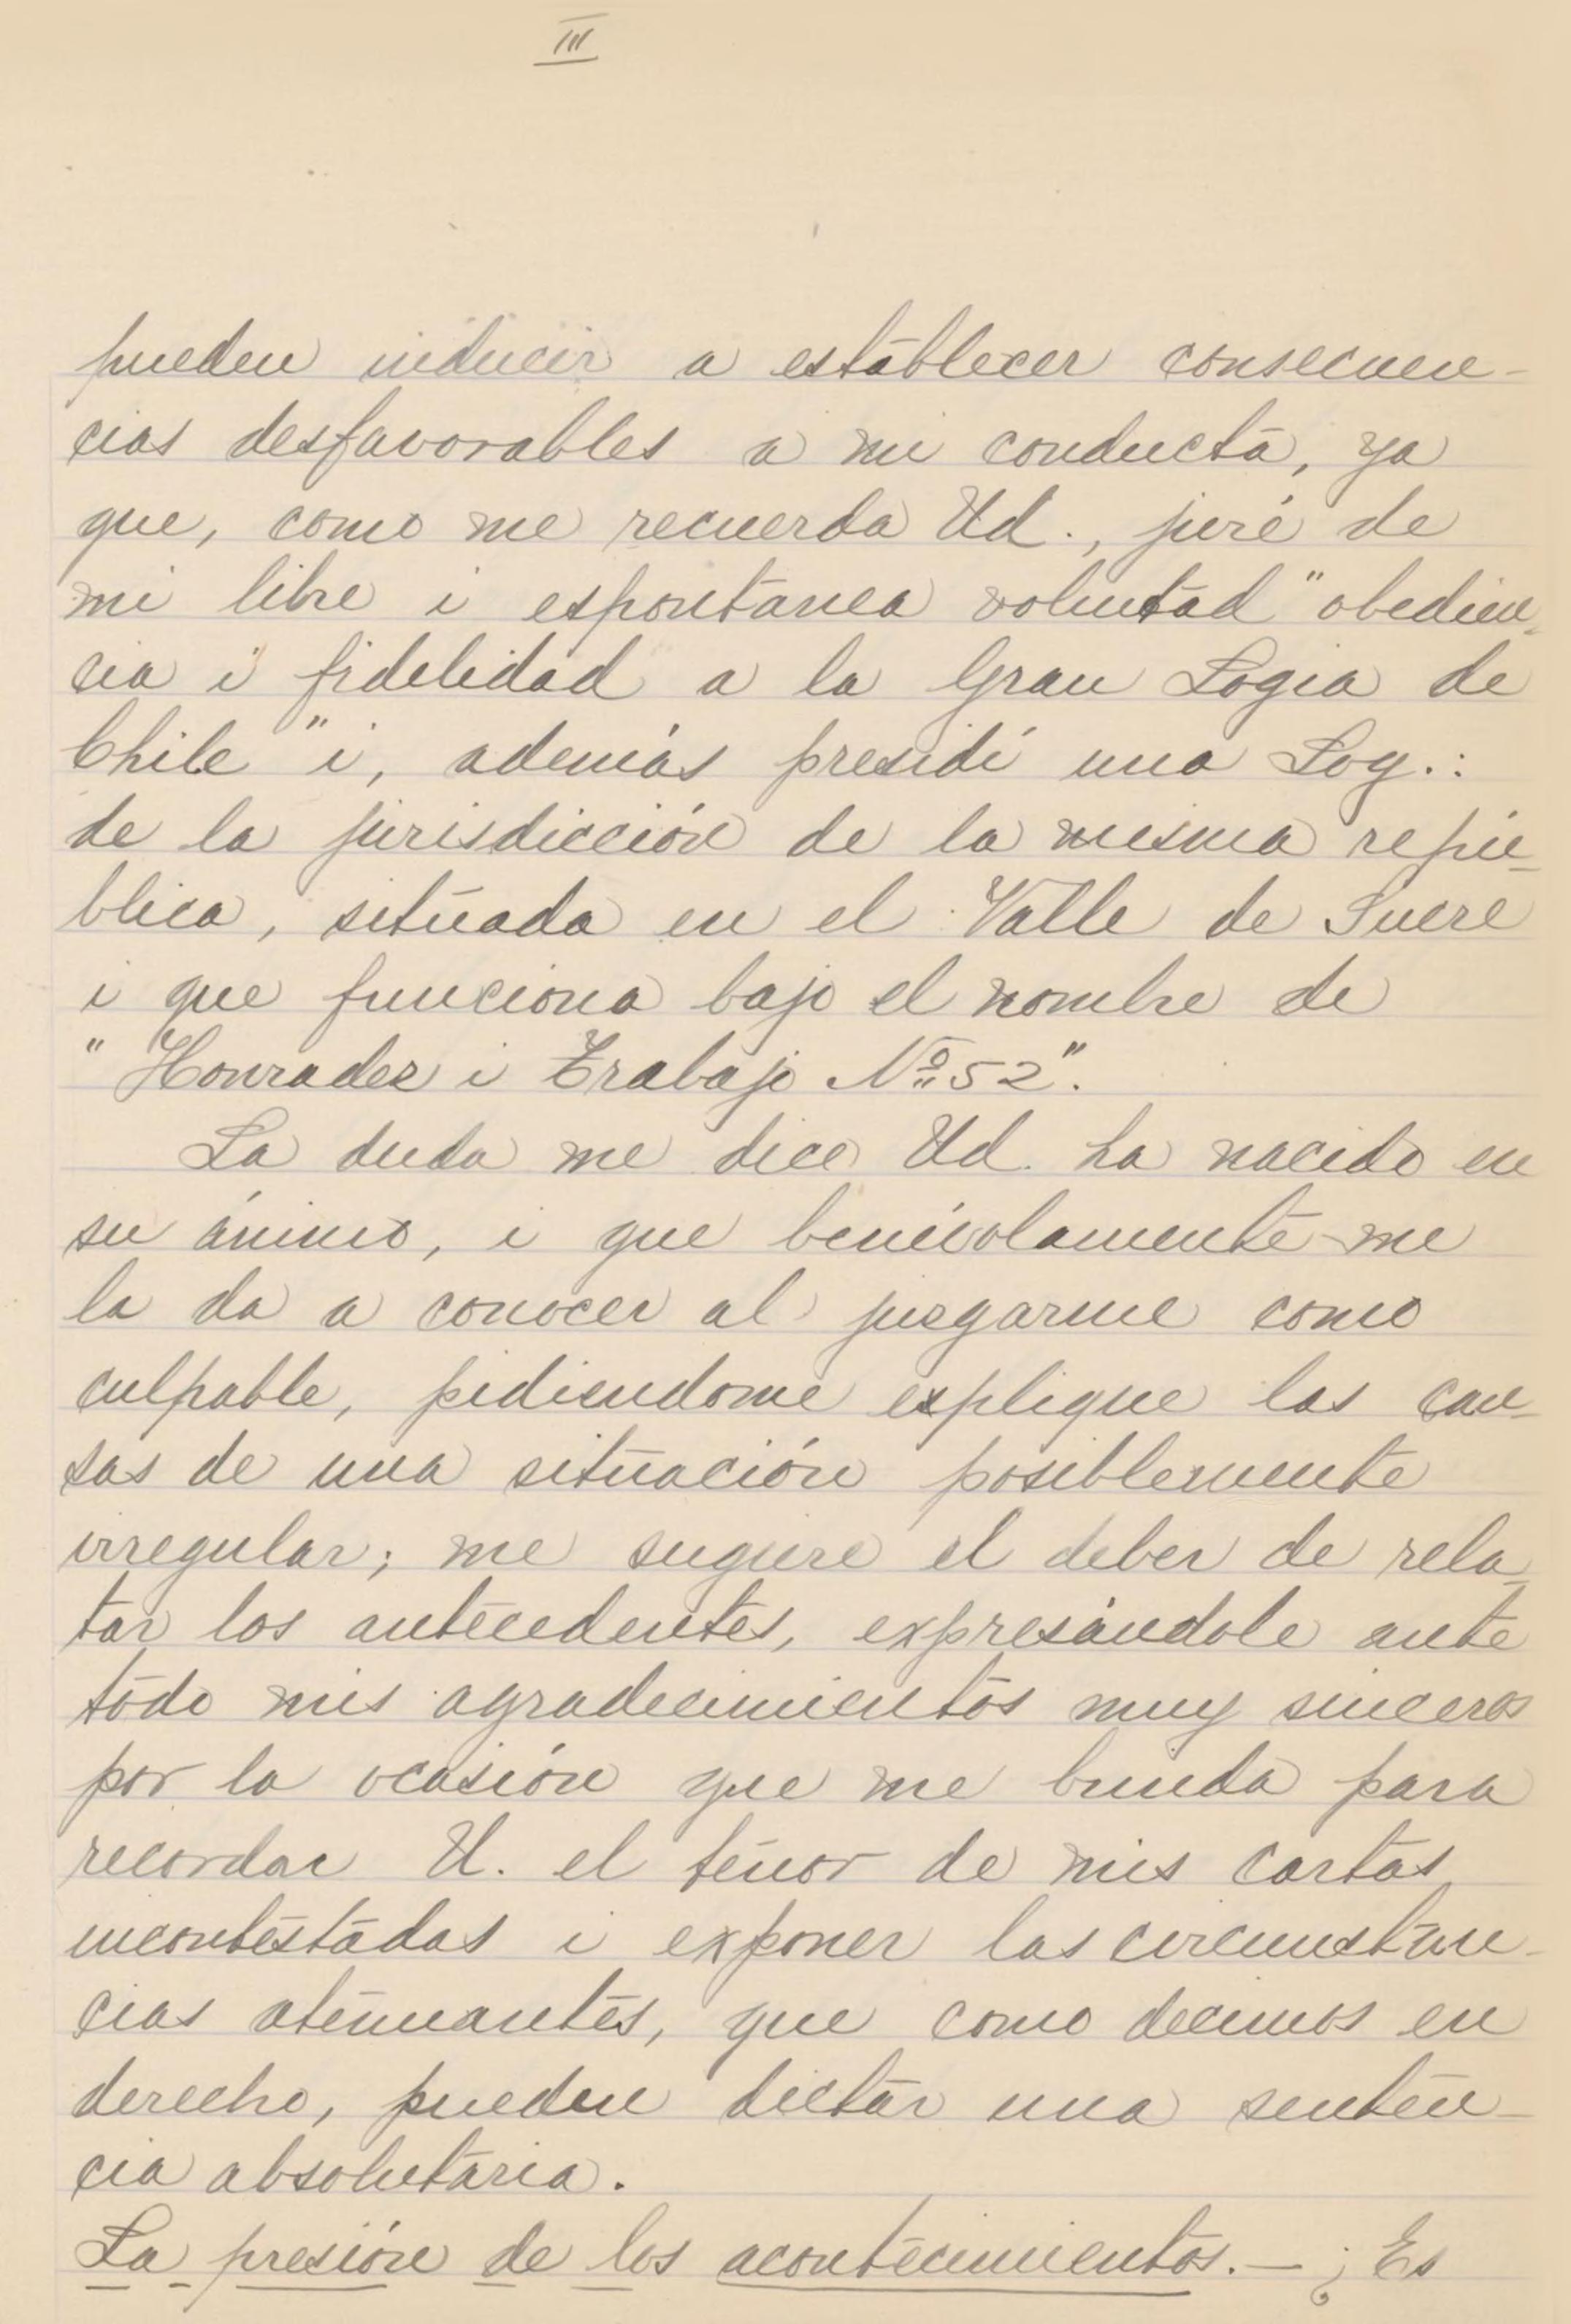 III
pueden inducir a establecer consecuen-
cias desfavorables a mi conducta, ya
que, como me recuerda Ud., juré de
mi libre i espontánea voluntad "obedien-
cia i fidelidad a la Gran Logia de
Chile" i, además presidí una Log.:
de la jurisdicción de la mesma repú-
blica, situada en el Valle de Sucre
i que funciona bajo el nombre de
"Honradez i Trabajo Nº 52".
La duda me dice Ud. ha nacido en
su ánimo, i que benévolamente me
la da a conocer al juzgarme como
culpable, pidiendome esplique las cau-
sas de una situación posiblemente
irregular; me sugiere el deber de rela-
tar los antecedentes, expresándole ante
todo mis agradecimientos muy sinceros
por la ocasión que me brinda para
recordar U. el tenor de mis cartas
incontestadas i exponer las circunstan-
cias atenuantes, que como decimos en
derecho, pueden dictar una senten-
cia absolutaria.
La presión de los acontecimientos.— ¿Es